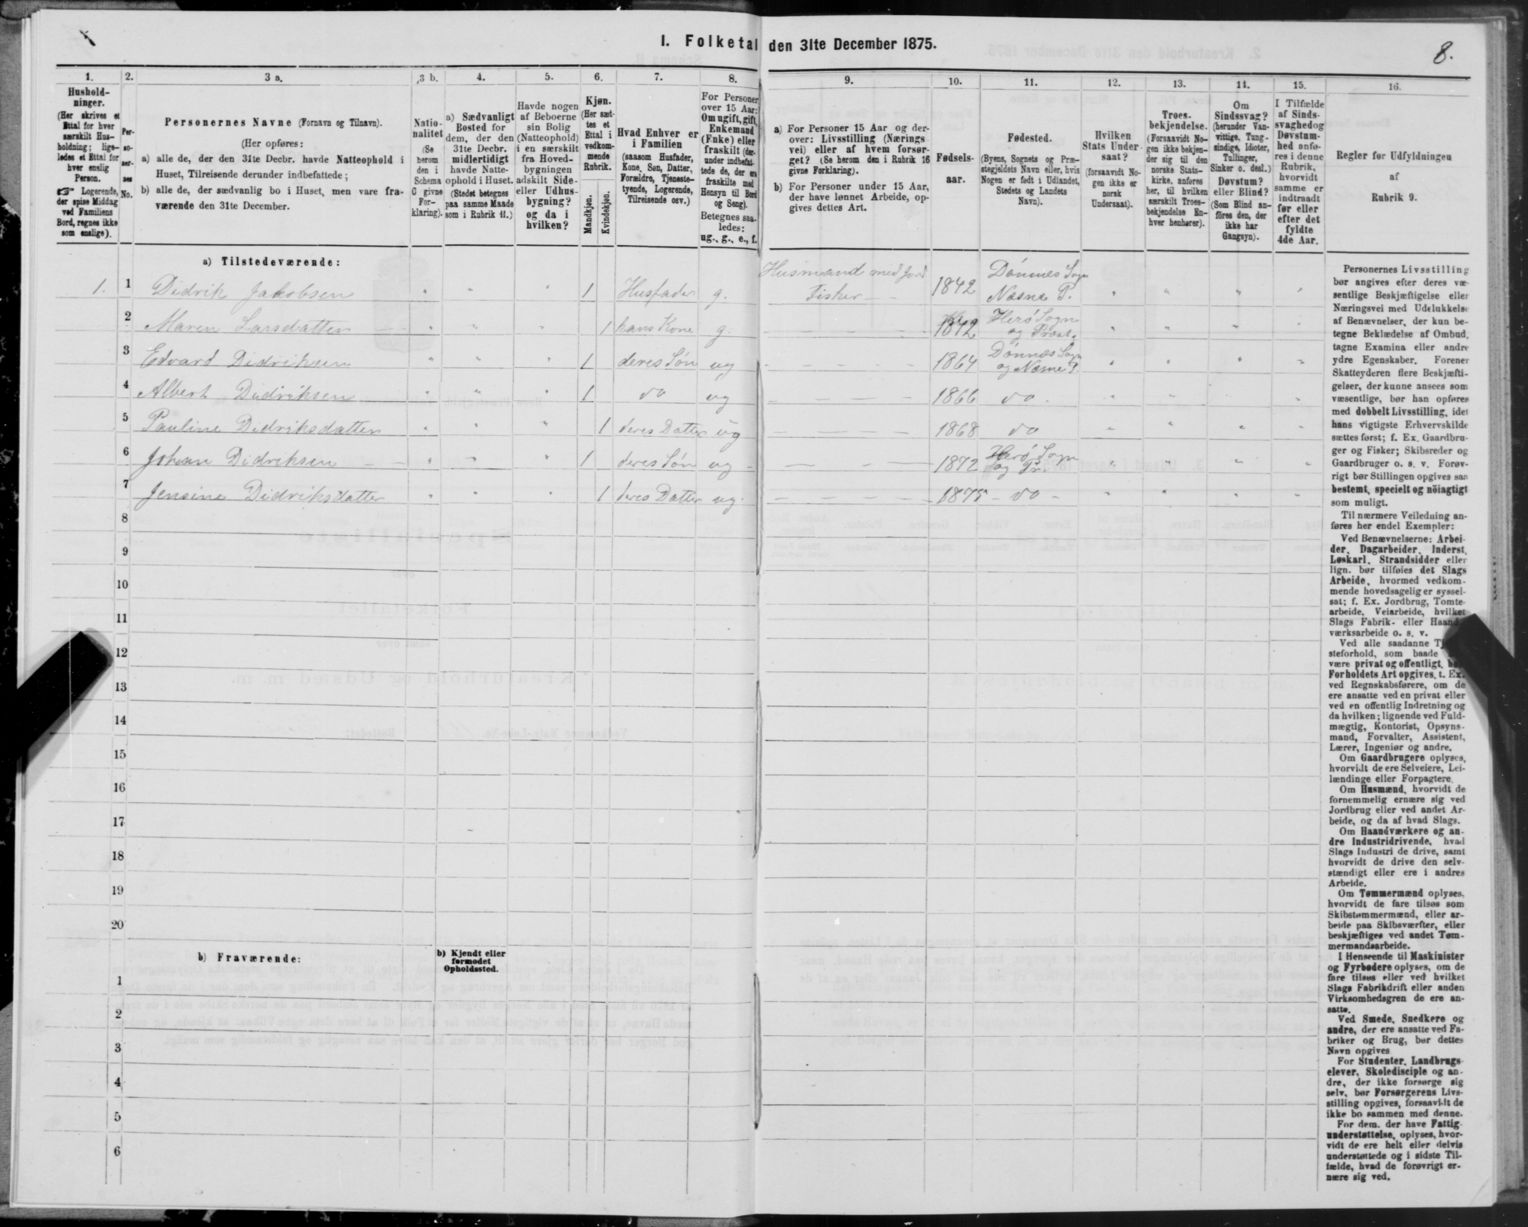 I. Folketal den 31te December 1875.
8.
1.
Hushold-
ninger.
(Her skrives et
Ettal for hver
særskilt Hus-
holdning; lige-
ledes et Ettal for
hver enslig
Person.
Logerende,
der spise Middag
ved Familiens
Bord, regnes ikke
som enslige).
2.
Per-
so-
ner-
nes
No.
3 a.
Personernes Navne (Fornavn og Tilnavn).
(Her opføres:
a) alle de, der den 31te Decbr. havde Natteophold i
Huset, Tilreisende derunder indbefattede;
b) alle de, der sædvanlig bo i Huset, men vare fra-
værende den 31te December.
3 b.
Natio-
nalitet
(Se
herom
den i
Schema
C givne
For-
klaring).
4.
a) Sædvanligt
Bosted for
dem, der den
31te Decbr.
midlertidigt
havde Natte-
ophold i Huset.
(Stedet betegnes
paa samme Maade
som i Rubrik 11.)
5.
Havde nogen
af Beboerne
sin Bolig
(Natteophold)
i en særskilt
fra Hoved-
bygningen
adskilt Side-
eller Udhus-
bygning?
og da i
hvilken?
6.
Kjøn.
(Her sæt-
tes et
Ettal i
vedkom-
mende
Rubrik.
Mandkjøn.
Kvindekjøn.
7.
Hvad Enhver er
i Familien
(saasom Husfader,
Kone, Søn, Datter,
Forældre, Tjeneste-
tyende, Logerende,
Tilreisende osv.)
8.
For Personer
over 15 Aar:
Om ugift, gift,
Enkemand
(Enke) eller
fraskilt (der-
under indbefat-
tede de, der ere
fraskilte med
Hensyn til Bord
og Seng).
Betegnes saa-
ledes:
ug., g., e., f.
9.
a) For Personer 15 Aar og der-
over: Livsstilling (Nærings-
vei) eller af hvem forsør-
get? (Se herom den i Rubrik 16
givne Forklaring).
b) For Personer under 15 Aar,
der have lønnet Arbeide, op-
gives dettes Art.
10.
Fødsels-
aar.
11.
Fødested.
(Byens, Sognets og Præ-
stegjeldets Navn eller, hvis
Nogen er født i Udlandet,
Stedets og Landets
Navn).
12.
Hvilken
Stats Under-
saat?
(forsaavidt No-
gen ikke er
norsk
Undersaat).
13.
Troes-
bekjendelse.
(Forsaavidt No-
gen ikke bekjen-
der sig til den
norske Stats-
kirke, anføres
her, til hvilken
særskilt Troes-
bekjendelse En-
hver henhører).
14.
Om
Sindssvag?
(herunder Van-
vittige, Tung-
sindige, Idioter,
Tullinger,
Sinker o. desl.)
Døvstum?
eller Blind?
(Som Blind an-
føres den, der
ikke har
Gangsyn).
15.
I Tilfælde
af Sinds-
svaghed og
Døvstum-
hed anfø-
res i denne
Rubrik,
hvorvidt
samme er
indtraadt
før eller
efter det
fyldte
4de Aar.
16.
Regler for Udfyldningen
af
Rubrik 9.
a) Tilstedeværende:
1. 1 Didrik Jakobsen " " " 1 Husfader g. Husmand med Jord Fisker 1842 Dønnes Sogn Næsne P. " " " "
2 Maren Larsdatter " " " 1 hans Kone g. 1842 Herø Sogn og Præst.
3 Edvard Didriksen " " " 1 deres Søn ug 1864 Dønnæs Sogn og Næsne P. " " " "
4 Albert Didriksen " " " 1 do ug 1866 do " " " "
5 Pauline Didriksdatter " " " 1 deres Datter ug 1868 do " " " "
6 Johan Didriksen " " " 1 deres Søn ug 1872 Herø Sogn og Pr. " " " "
7 Jensine Didriksdatter " " " 1 deres Datter ug. 1875 do " " " "
8
9
10
11
12
13
14
15
16
17
18
19
20
b) Fraværende:
b) Kjendt eller
formodet
Opholdssted.
1
2
3
4
5
6
Personernes Livsstilling
bør angives efter deres væ-
sentlige Beskjæftigelse eller
Næringsvei med Udelukkelse
af Benævnelser, der kun be-
tegne Beklædelse af Ombud,
tagne Examina eller andre
ydre Egenskaber. Forener
Skatteyderen flere Beskjæfti-
gelser, der kunne ansees som
væsentlige, bør han opføres
med dobbelt Livsstilling, idet
hans vigtigste Erhvervskilde
sættes først; f. Ex. Gaardbru-
ger og Fisker; Skibsreder og
Gaardbruger o. s. v. Forøv-
rigt bør Stillingen opgives saa
bestemt, specielt og nöiagtigt
som muligt.
Til nærmere Veiledning an-
føres her endel Exempler:
Ved Benævnelserne: Arbei-
der, Dagarbeider, Inderst,
Løskarl, Strandsidder eller
lign. bør tilføies det Slags
Arbeide, hvormed vedkom-
mende hovedsagelig er syssel-
sat; f. Ex. Jordbrug, Tomte-
arbeide, Veiarbeide, hvilket
Slags Fabrik- eller Haand-
værksarbeide o. s. v.
Ved alle saadanne Tje-
steforhold, som baade
være privat og offentligt, bør
Forholdets Art opgives, t. Ex.
ved Regnskabsførere, om de
ere ansatte ved en privat eller
ved en offentlig Indretning og
da hvilken; lignende ved Fuld-
mægtig, Kontorist, Opsyns-
mand, Forvalter, Assistent,
Lærer, Ingeniør og andre.
Om Gaardbrugere oplyses,
hvorvidt de ere Selveiere, Lei-
lændinge eller Forpagtere.
Om Husmænd, hvorvidt de
fornemmelig ernære sig ved
Jordbrug eller ved andet Ar-
beide, og da af hvad Slags.
Om Haandværkere og an-
dre Industridrivende, hvad
Slags Industri de drive, samt
hvorvidt de drive den selv-
stændigt eller ere i andres
Arbeide.
Om Tømmermænd oplyses,
hvorvidt de fare tilsøs som
Skibstømmermænd, eller ar-
beide paa Skibsværfter, eller
beskjæftiges ved andet Tøm-
mermandsarbeide.
I Henseende til Maskinister
og Fyrbødere oplyses, om de
fare tilsøs eller ved hvilket
Slags Fabrikdrift eller anden
Virksomhedsgren de ere an-
satte.
Ved Smede, Snedkere og
andre, der ere ansatte ved Fa-
briker og Brug, bør dettes
Navn opgives
For Studenter, Landbrugs-
elever, Skoledisciple og an-
dre, der ikke forsørge sig
selv, bør Forsørgerens Livs-
stilling opgives, forsaavidt de
ikke bo sammen med denne.
For dem, der have Fattig-
understøttelse, oplyses, hvor-
vidt de ere helt eller delvis
understøttede og i sidste Til-
fælde, hvad de forøvrigt er-
nære sig ved.